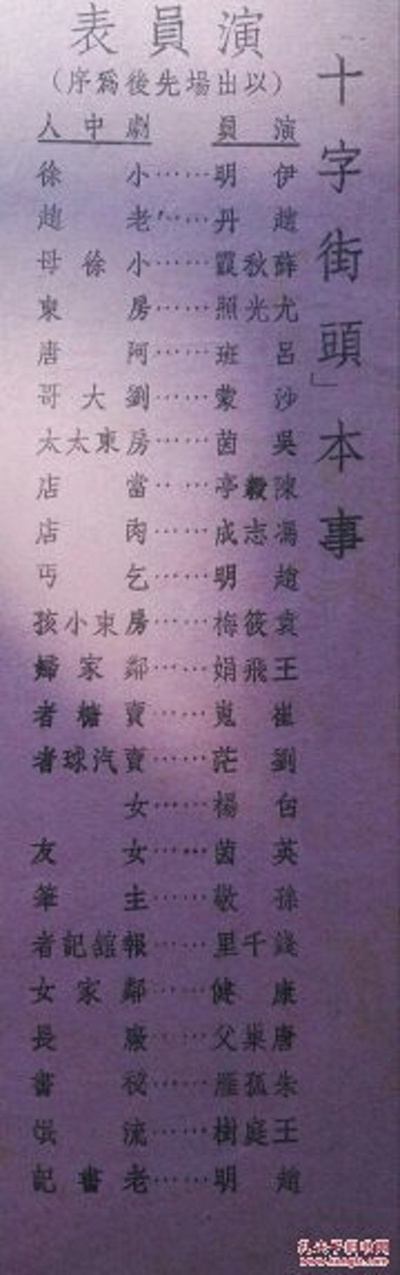 十字街頭」本事
演員表
(以出場先後爲序)
演員 劇中人
伊明……小徐
趙丹……老趙
薛秋霞……小徐母
尤光照……房東
呂班……阿唐
沙蒙……劉大哥
吳茵……房東太太
陳毅亭……當店
馮志成……肉店
趙明……乞丐
袁筱梅……房東小孩
王飛娟……鄰家婦
崔嵬……賣糖者
劉茫……賣汽球者
白楊……女
英茵……女友
孫敬……主筆
錢千里……報舘記者
康健……鄰家女
唐巢父……廠長
朱孤雁……秘書
王庭樹……流氓
趙明……老書記